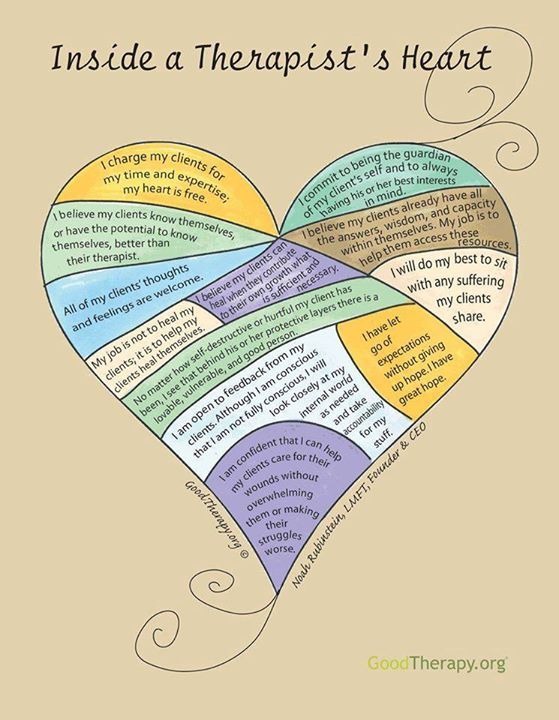 Inside a Therapist's Heart
I charge my clients for
my time and expertise;
my heart is free.
I commit to being the guardian
of my client's self and to always
having his or her best interests
in mind.
I believe my clients know themselves,
or have the potential to know
themselves, better than
their therapist.
I believe my clients already have all
the answers, wisdom, and capacity
within themselves. My job is to
help them access these
resources.
All of my clients' thoughts
and feelings are welcome.
I believe my clients can
heal when they contribute
to their own growth what
is sufficient and
necessary.
I will do my best to sit
with any suffering
my clients
share.
My job is not to heal my
clients; it is to help my
clients heal themselves.
No matter how self-destructive or hurtful my client has
been, I see that behind his or her protective layers there is a
lovable, vulnerable, and good person.
I have let
go of
expectations
without giving
up hope. I have
great hope.
I am open to feedback from my
clients. Although I am conscious
that I am not fully conscious, I will
look closely at my
internal world
as needed
and take
accountability
for my
stuff.
I am confident that I can help
my clients care for their
wounds without
overwhelming
them or making
their
struggles
worse.
GoodTherapy.org ©
Noah Rubinstein, LMFT, Founder & CEO
GoodTherapy.org®